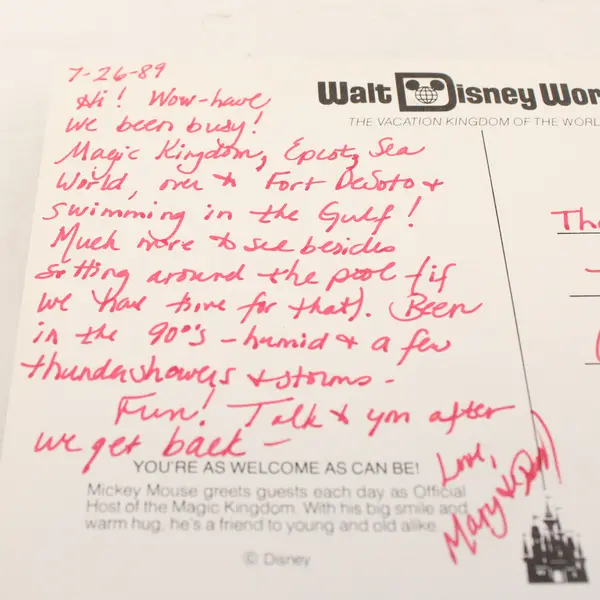 7-26-89
Hi! Wow-have
we been busy!
Magic Kingdom, Epcot, Sea
World, over to Fort DeSoto &
swimming in the Gulf!
Much more to see besides
sitting around the pool (if
we have time for that). Been
in the 90°'s - humid & a few
thundershowers & storms -
Fun! Talk to you after
we get back -
Love,
Mary &
YOU'RE AS WELCOME AS CAN BE!
Mickey Mouse greets guests each day as Official
Host of the Magic Kingdom. With his big smile and
warm hug, he's a friend to young and old alike.
© Disney
Walt Disney Wor
THE VACATION KINGDOM OF THE WORL
Th